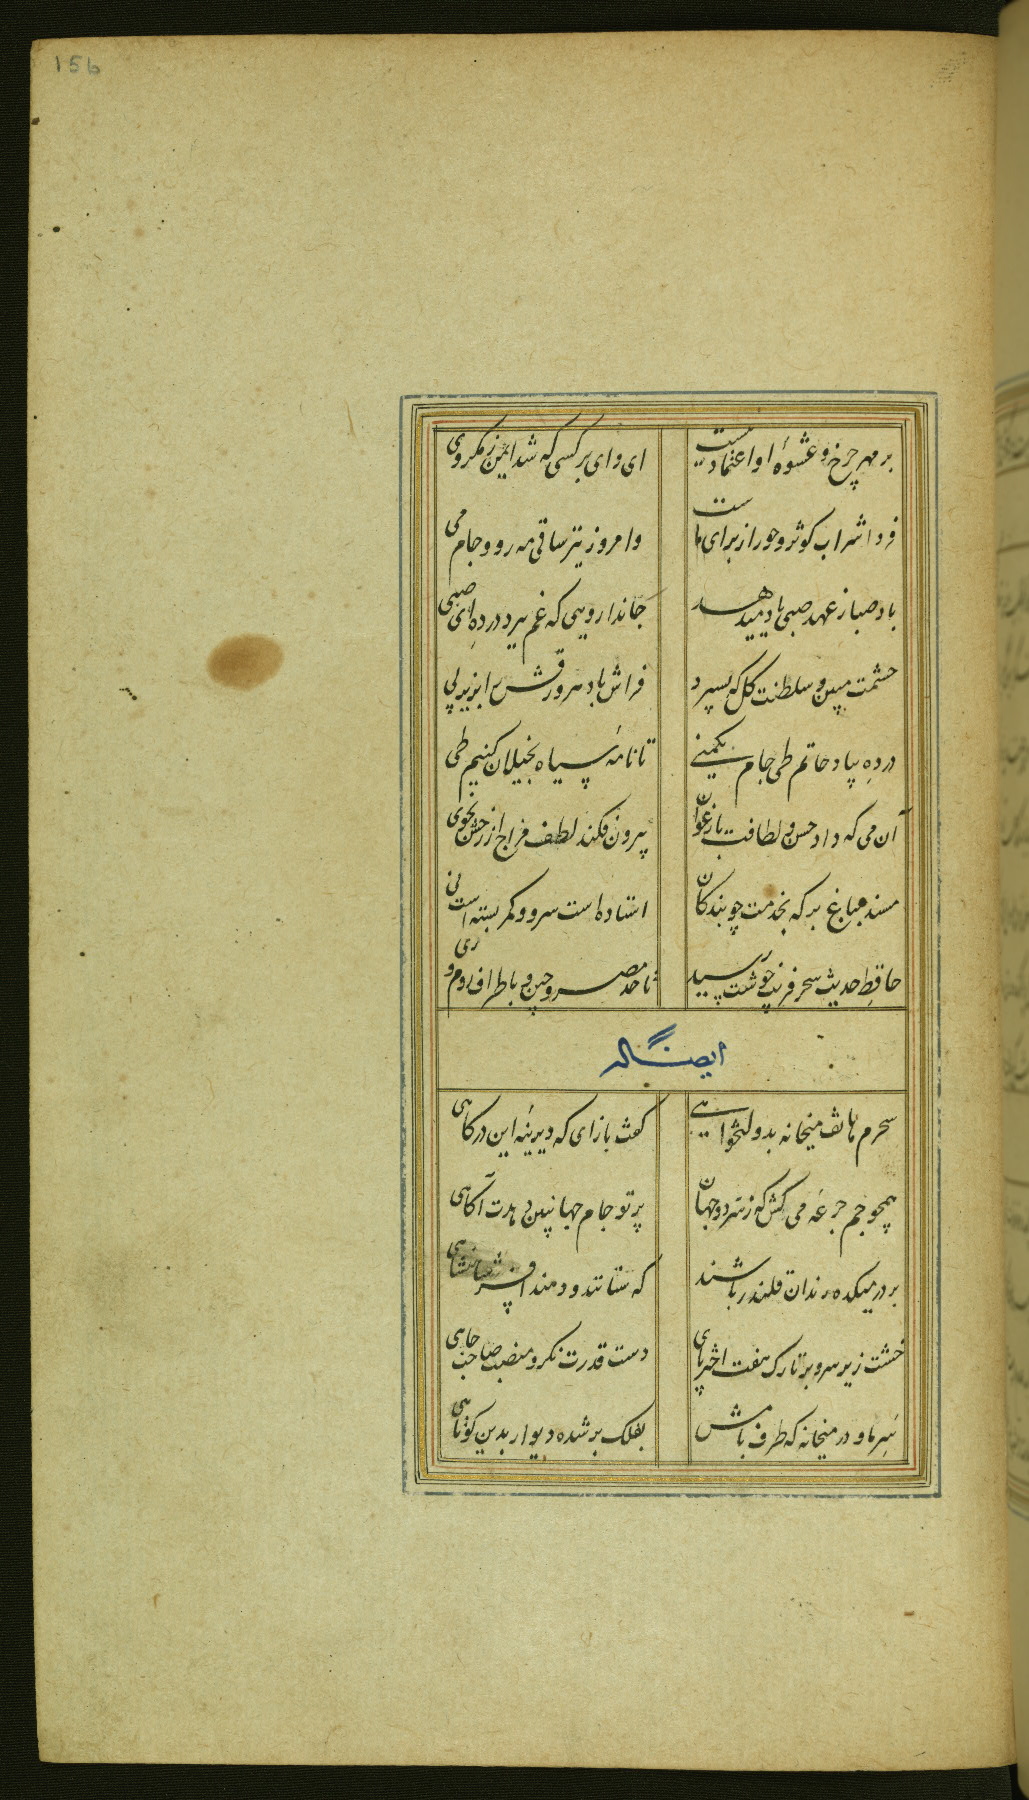 156
بر مهر چرخ و عشوهٔ او اعتماد نیست ای وای بر کسی که شد ایمن ز مکر وی
فردا شراب کوثر و حور از برای ماست وامروز نیز ساقی مه رو و جام می
باد صبا ز عهد صبی یاد میدهد جاندارویی که غم ببرد درده ای صبی
حشمت مبین و سلطنت کل که بسپرد فراش باد هر ورقش را بزیر پی
درده بیاد حاتم طی جام یکمنی تا نامهٔ سیاه بخیلان کنیم طی
آن می که داد حسن و لطافت بارغوان بیرون فکند لطف مزاج از رخش بخوی
مسند بباغ بر که بخدمت چو بندکان استاده است سرو و کمر بسته است نی
حافظ حدیث سحر فریب خوشت رسید تا حد مصر و چین و باطراف روم و ری
ایضاً له
سحرم هاتف میخانه بدولتخواهی کفت بازآی که دیرینهٔ این درکاهی
همچو جم جرعهٔ می کش که ز سر دو جهان پرتو جام جهانبین دهدت آکاهی
بر در میکده رندان قلندر باشند که ستانند و دهند افسر شاهنشاهی
خشت زیر سر و بر تارک هفت اختر پای دست قدرت نکر و منصب صاحب جاهی
سر ما و در میخانه که طرف بامش بفلک بر شده دیوار بدین کوتاهی